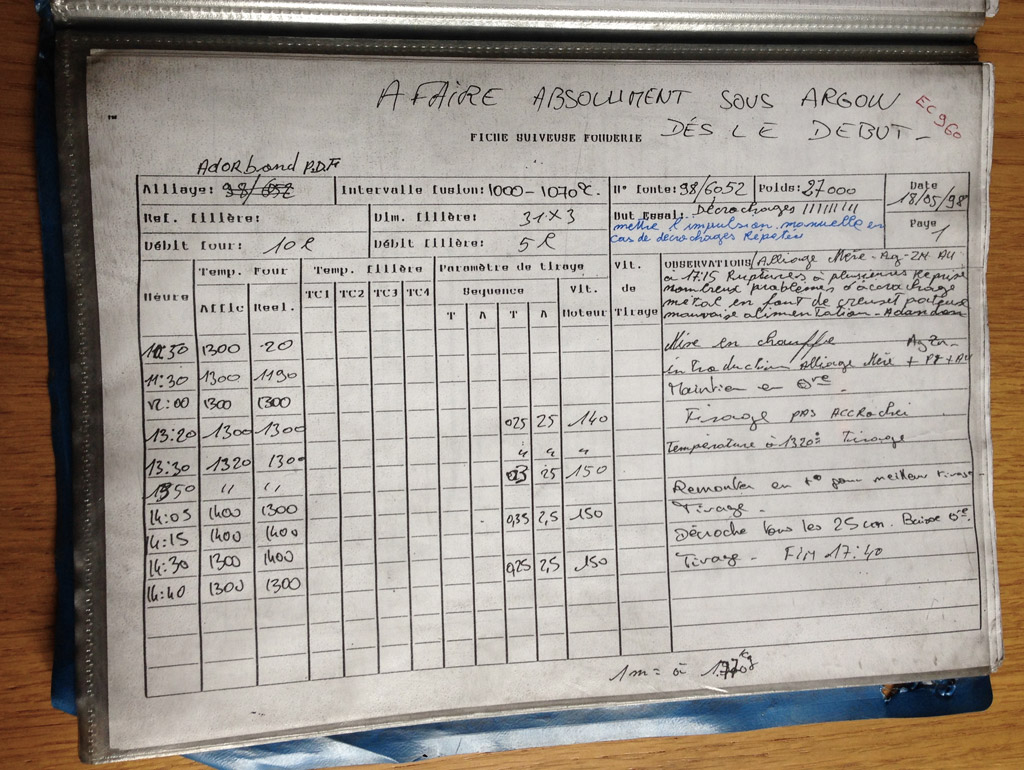 A FAIRE ABSOLUMENT SOUS ARGON
EC960
FICHE SUIVEUSE FONDERIE DÉS LE DEBUT -
Adorbond P.D.F
Alliage: 98/652 Intervalle fusion: 1000-1070°C. N° fonte: 98/6052 Poids: 27000 Date 18/05/98
Ref. filière: Dim. filière: 31x3 But Essai: Décrochages !!!!!!!!
mettre l'impulsion manuelle en
cas de décrochages Repetés
Page 1
Débit four: 10 l Débit filière: 5 l
Heure Temp. Four Temp. filière Paramètre de tirage Vit. de Tirage OBSERVATIONS / Alliage Mère - Ag-ZN AU
Affic Reel. TC1 TC2 TC3 TC4 Sequence Vit. Moteur
T A T A
à 17:15 Ruptures à plusieurs reprise
nombreux problèmes d'accrochage
métal en font de creuset poteux
mauvaise alimentation -
10:30 1300 20 Mise en chauffe
11:30 1190 1300 introduction Alliage Mère + Pd + AU AgZn
12:00 1300 1300 Maintien en
13:20 1300 1300 025 25 140 Tirage PAS ACCROCHÉ
13:30 1320 1300 " " " Température à 1320° Tirage
1350 " " 25 150
14:05 1400 1300 Remonter en t° pour meilleur tirage -
14:15 1400 1400 0,35 2,5 150 Tirage -
14:30 1300 1400 Décroche tous les 25 cm. Baisse
14:40 1300 1300 0,25 2,5 150 Tirage - FIN 17:40
1m = à